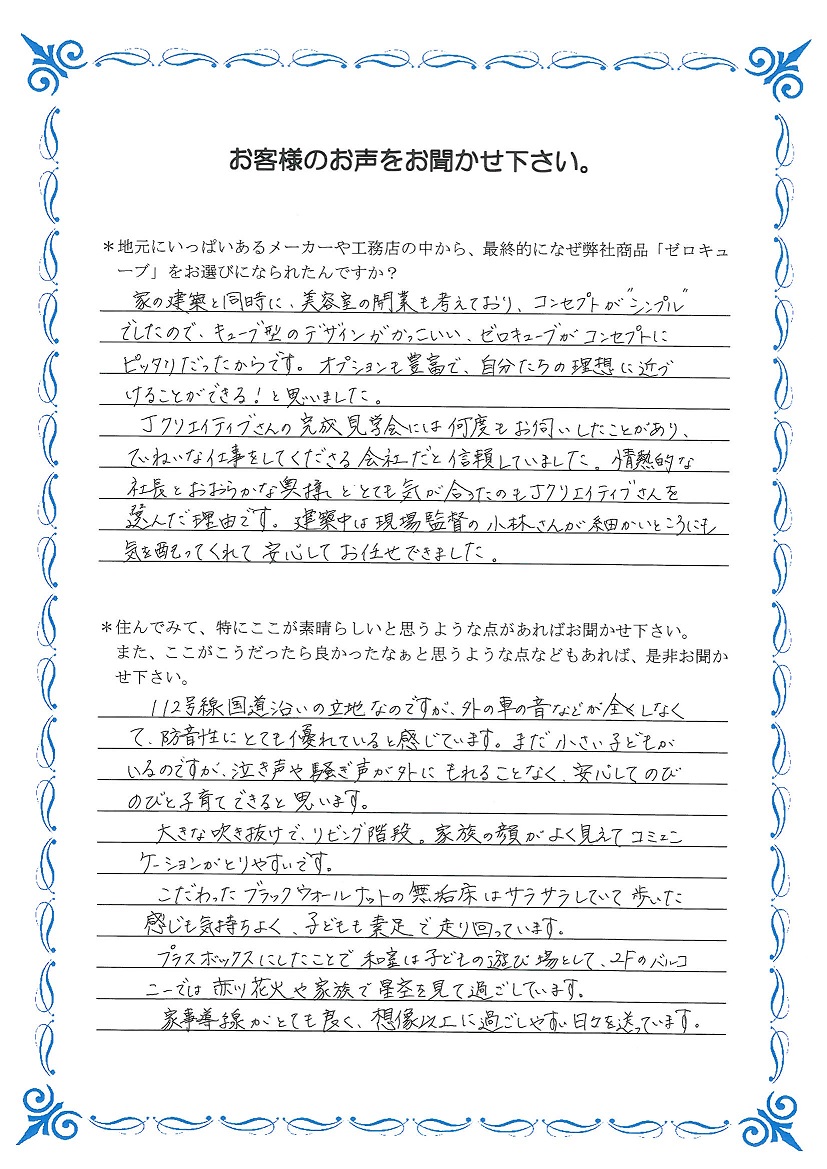 お客様のお声をお聞かせ下さい。
＊地元にいっぱいあるメーカーや工務店の中から、最終的になぜ弊社商品「ゼロキュ
ーブ」をお選びになられたんですか？
家の建築と同時に、美容室の開業も考えており、コンセプトが“シンプル”
でしたので、キューブ型のデザインがかっこいい、ゼロキューブがコンセプトに
ピッタリだったからです。オプションも豊富で、自分たちの理想に近づ
けることができる！と思いました。
Jクリエイティブさんの完成見学会には何度もお伺いしたことがあり、
ていねいな仕事をしてくださる会社だと信頼していました。情熱的な
社長とおおらかな奥様ととても気が合ったのもJクリエイティブさんを
選んだ理由です。建築中は現場監督の小林さんが細かいところにも
気を配ってくれて安心してお任せできました。
＊住んでみて、特にここが素晴らしいと思うような点があればお聞かせ下さい。
また、ここがこうだったら良かったなぁと思うような点などもあれば、是非お聞か
せ下さい。
112号線国道沿いの立地なのですが、外の車の音などが全くしなく
て、防音性にとても優れていると感じています。まだ小さい子どもが
いるのですが、泣き声や騒ぎ声が外にもれることなく、安心してのび
のびと子育てできると思います。
大きな吹き抜けで、リビング階段。家族の顔がよく見えてコミュニ
ケーションがとりやすいです。
こだわったブラックウォールナットの無垢床はサラサラしていて歩いた
感じも気持ちよく、子どもも素足で走り回っています。
プラスボックスにしたことで和室は子どもの遊び場として、2Fのバルコ
ニーでは赤川花火や家族で星空を見て過ごしています。
家事導線がとても良く、想像以上に過ごしやすい日々を送っています。